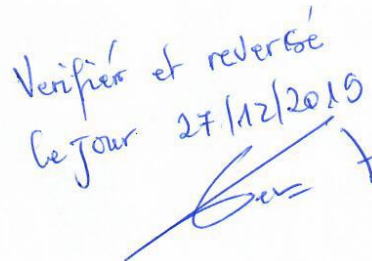 Verifier et reversé
Ce Jour 27/12/2019